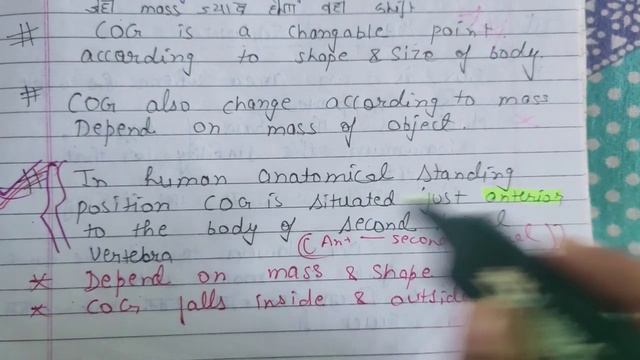 वहाँ mass ज्यादा होगा वहाँ shift
# COG is a changable point.
according to shape & size of body.
# COG also change according to mass
Depend on mass of object.
In human anatomical standing
position COG is situated just anterior
to the body of second
vertebra (Ant – second
* Depend on mass & shape
* COG falls inside & outside